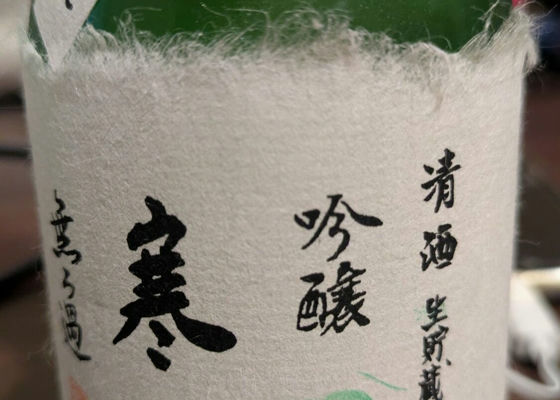 清酒 生貯蔵
吟醸
寒
無ろ過